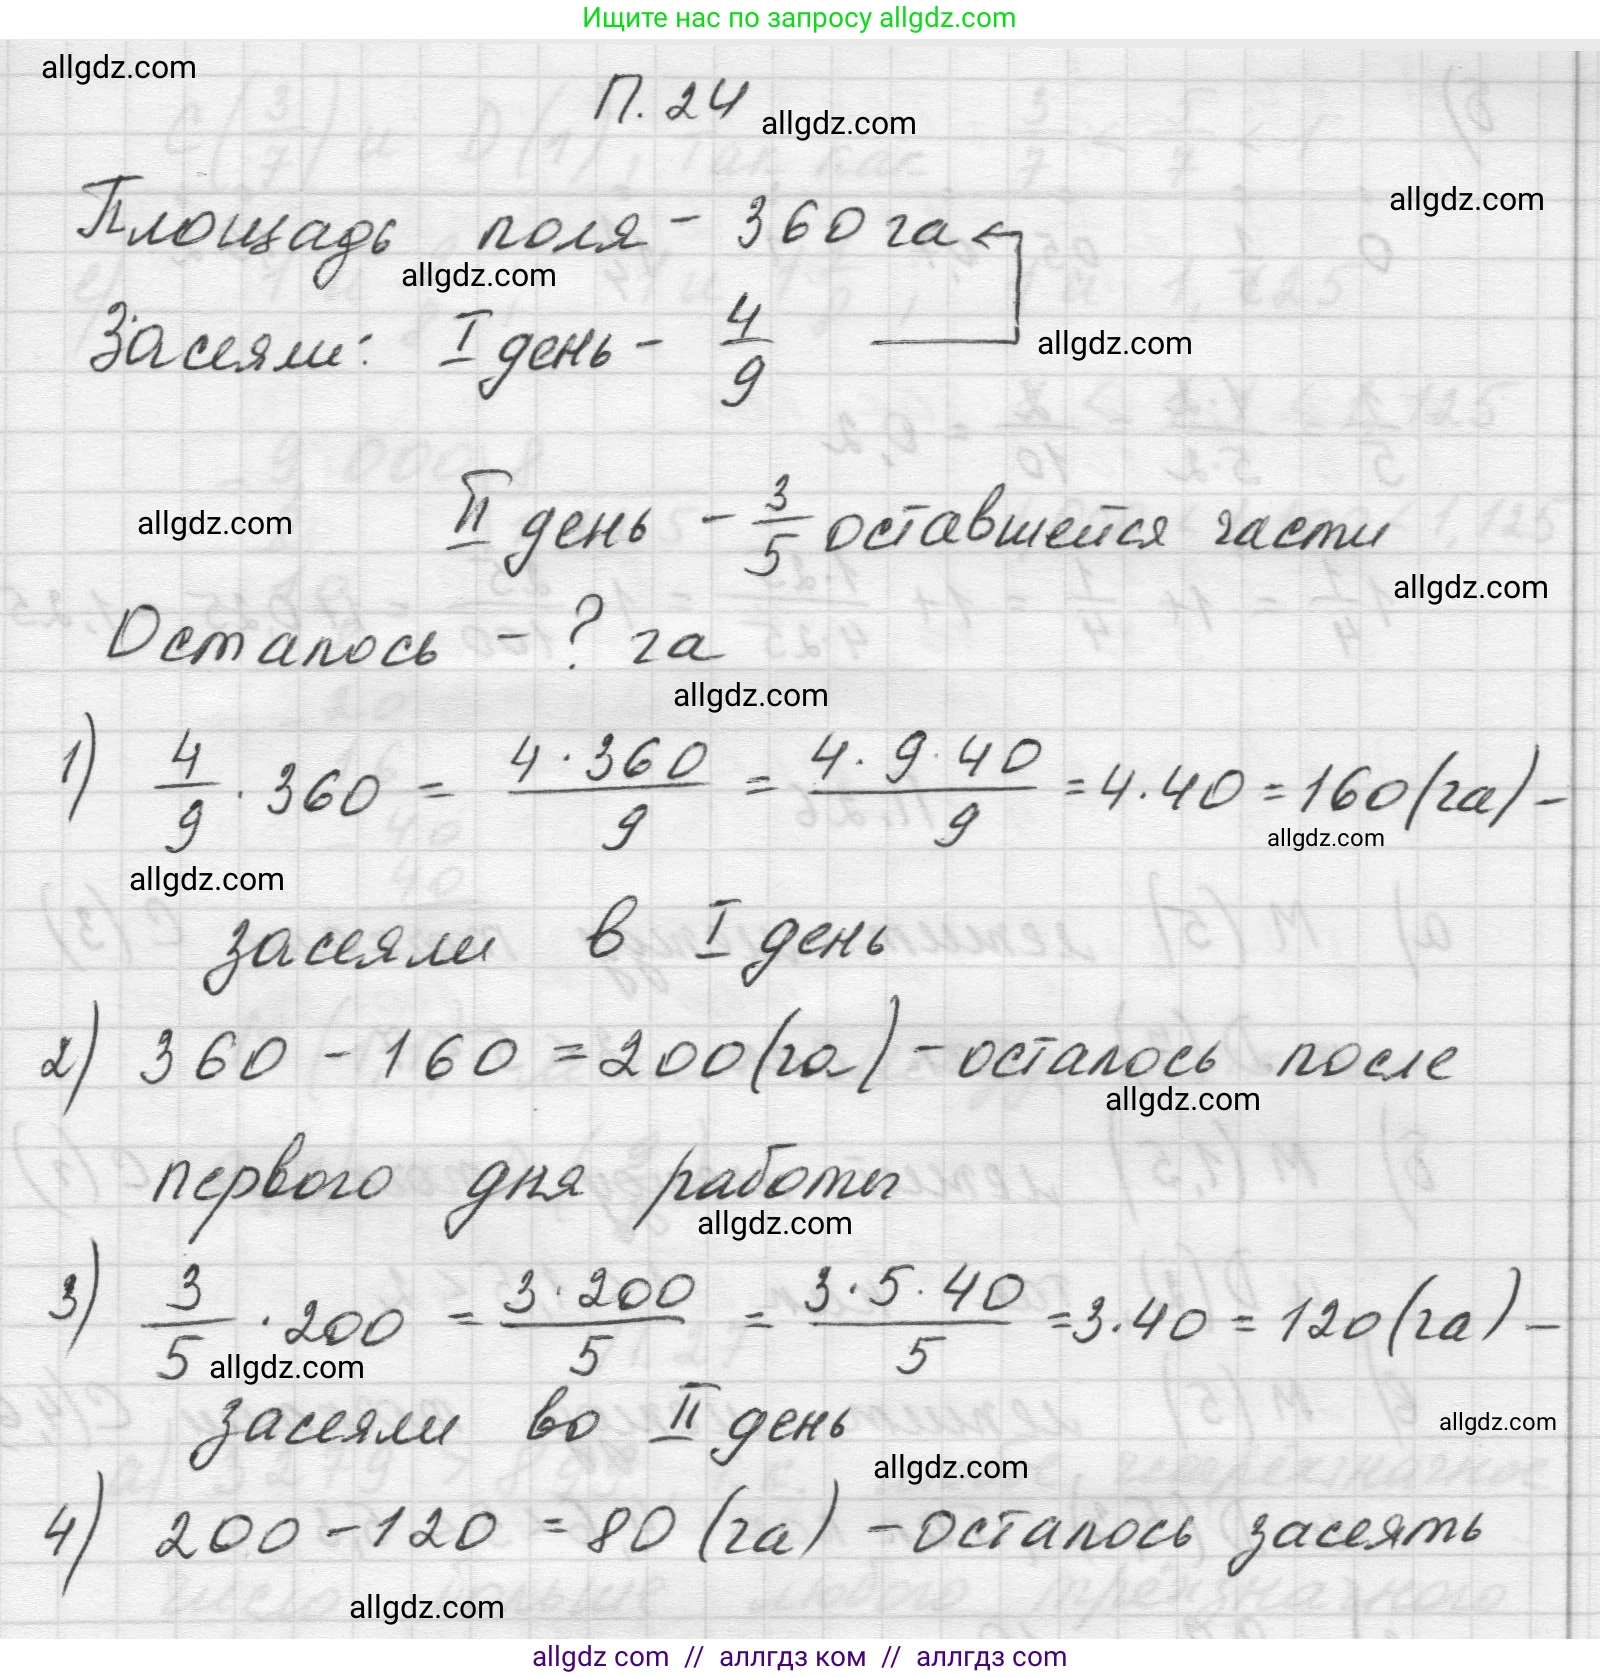 Ищите нас по запросу allgdz.com
allgdz.com
П. 24
allgdz.com
allgdz.com
Площадь поля - 360 га
allgdz.com
Засеяли: I день - 4/9
allgdz.com
allgdz.com
II день - 3/5 оставшейся части
allgdz.com
Осталось - ? га
allgdz.com
1) 4/9 · 360 = 4 · 360/9 = 4 · 9 · 40/9 = 4 · 40 = 160 (га) -
allgdz.com
allgdz.com
засеяли в I день
2) 360 - 160 = 200 (га) - осталось после
allgdz.com
первого дня работы
allgdz.com
3) 3/5 · 200 = 3 · 200/5 = 3 · 5 · 40/5 = 3 · 40 = 120 (га) -
allgdz.com
засеяли во II день
allgdz.com
allgdz.com
4) 200 - 120 = 80 (га) - осталось засеять
allgdz.com
allgdz com // аллгдз ком // аллгдз com